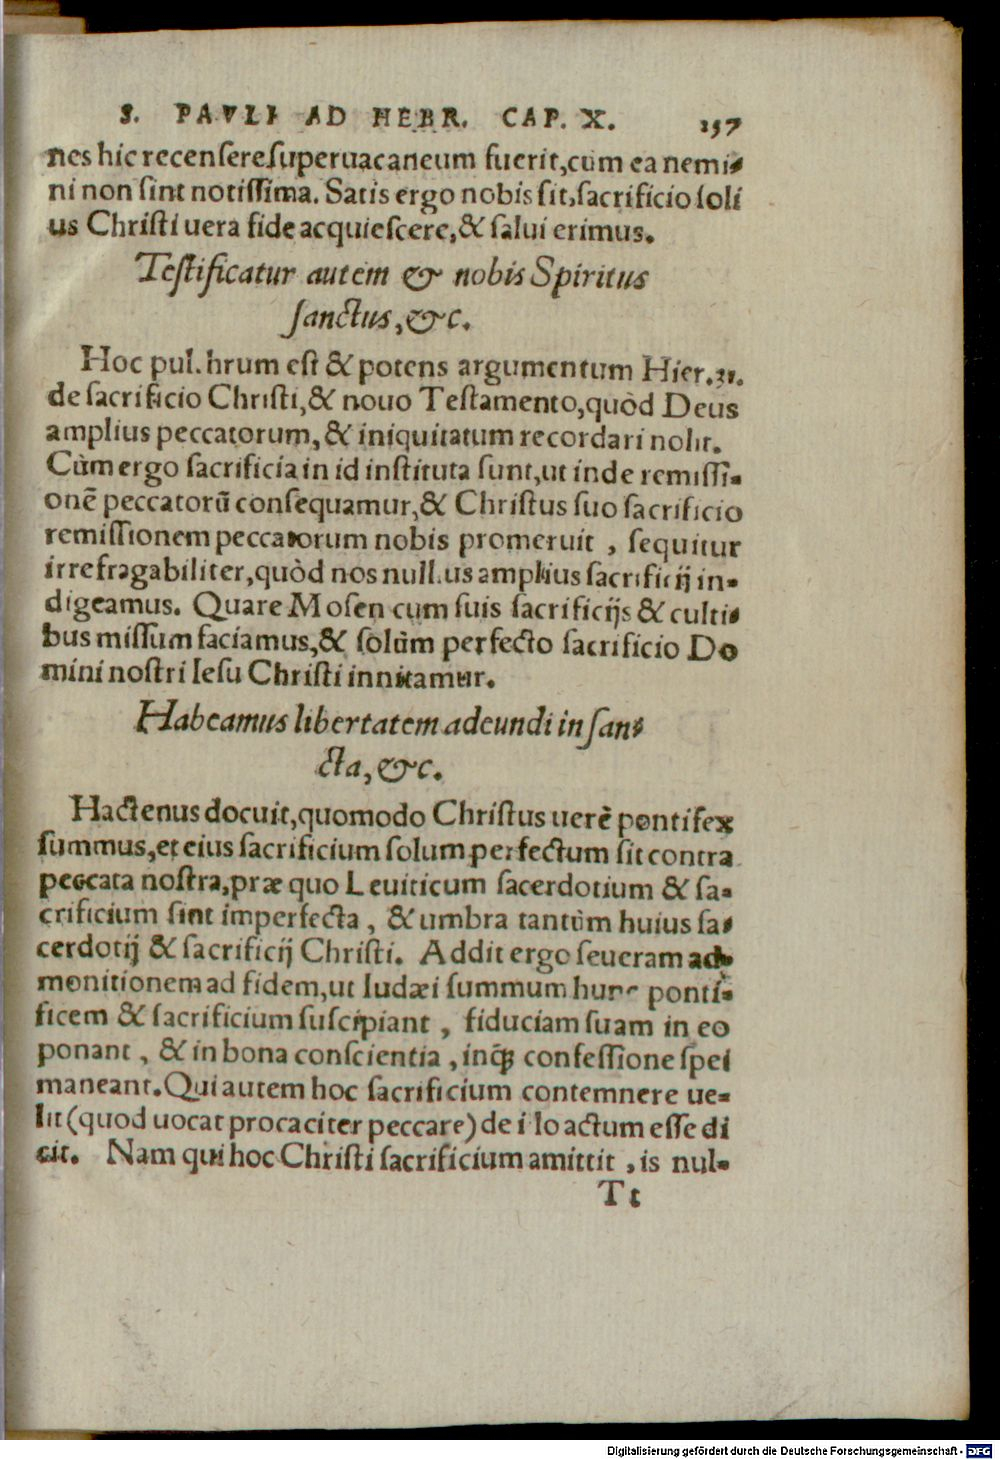 S. PAVLI AD HEBR. CAP. X. 157
nes hic recenſere ſuperuacaneum fuerit, cum ea nemi-
ni non ſint notiſſima. Satis ergo nobis ſit, ſacrificio ſoli
us Chriſti uera fide acquieſcere, & ſalui erimus.
Teſtificatur autem & nobis Spiritus
ſanctus, &c.
Hoc pulchrum eſt & potens argumentum Hier. 31.
de ſacrificio Chriſti, & nouo Teſtamento, quòd Deus
amplius peccatorum, & iniquitatum recordari nolit.
Cùm ergo ſacrificia in id inſtituta ſunt, ut inde remiſſi-
onē peccatorū conſequamur, & Chriſtus ſuo ſacrificio
remiſſionem peccatorum nobis promeruit, ſequitur
irrefragabiliter, quòd nos nullius amplius ſacrificij in-
digeamus. Quare Moſen cum ſuis ſacrificijs & culti-
bus miſſum faciamus, & ſolùm perfecto ſacrificio Do
mini noſtri Ieſu Chriſti innitamur.
Habeamus libertatem adeundi in ſan-
cta, &c.
Hactenus docuit, quomodo Chriſtus uerè pontifex
ſummus, et eius ſacrificium ſolum perfectum ſit contra
peccata noſtra, præ quo Leuiticum ſacerdotium & ſa-
crificium ſint imperfecta, & umbra tantùm huius ſa-
cerdotij & ſacrificij Chriſti. Addit ergo ſeueram ad-
monitionem ad fidem, ut Iudæi ſummum hunc ponti-
ficem & ſacrificium ſuſcipiant, fiduciam ſuam in eo
ponant, & in bona conſcientia, inq́ꝫ confeſſione ſpei
maneant. Qui autem hoc ſacrificium contemnere ue-
lit (quod uocat procaciter peccare) de illo actum eſſe di
cit. Nam qui hoc Chriſti ſacrificium amittit, is nul-
Tt
Digitalisierung gefördert durch die Deutsche Forschungsgemeinschaft - DFG